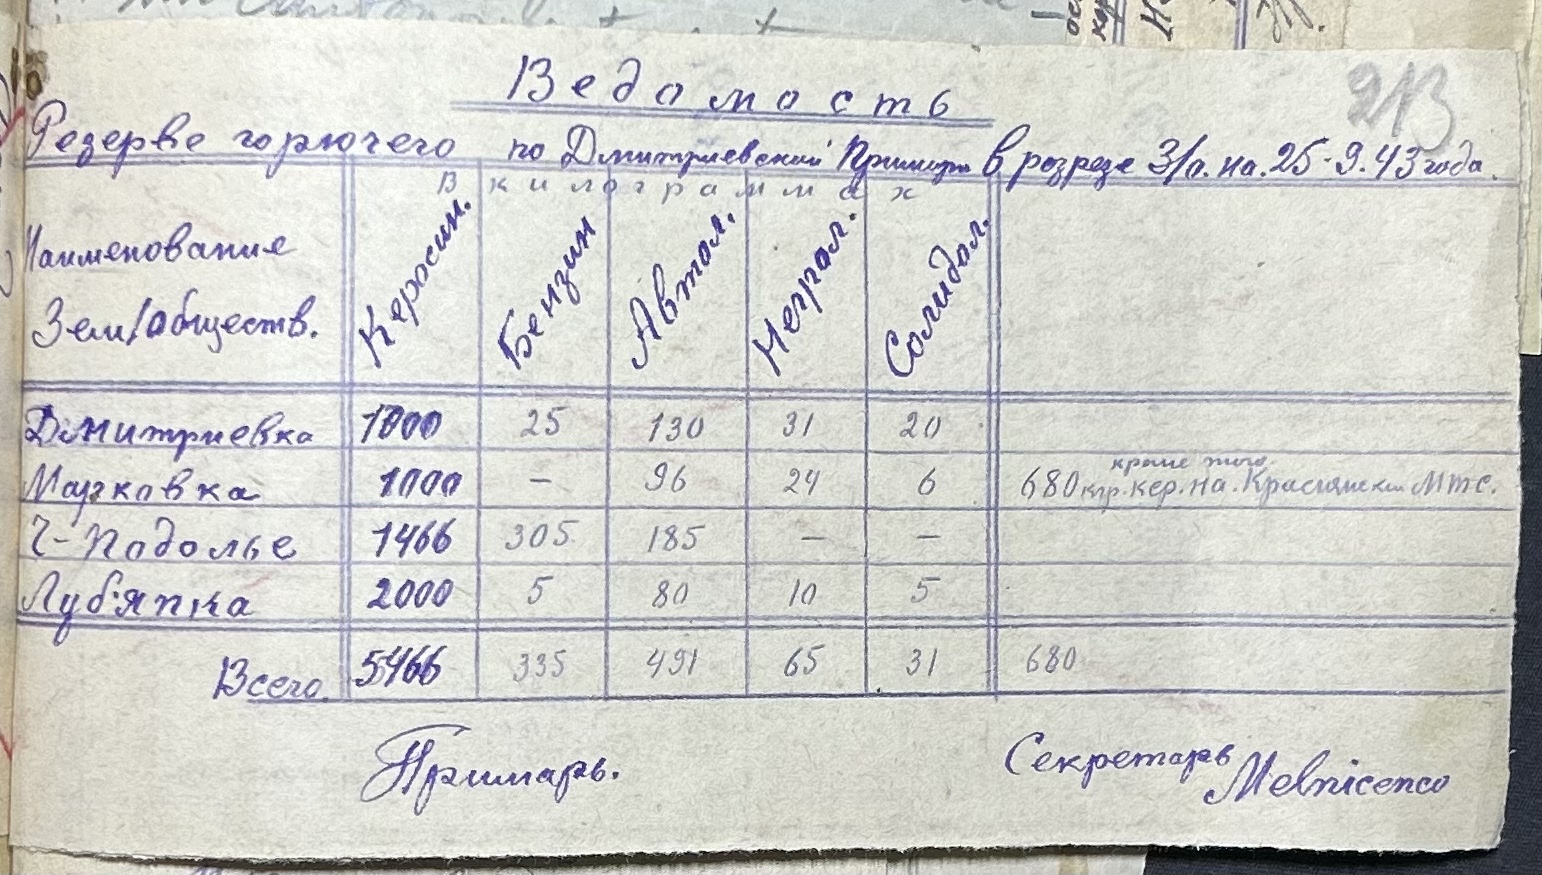 213
Ведомость
Резерве горючего по Дмитриевский Примэрт в розрезе З/о. на. 25-9.43 года.
в килограммах
Наименование Зем/обществ. Керосин. Бензин Автол. Неграл. Солидол.
Дмитриевка 1000 25 130 31 20
кроме того
Марковка 1000 – 96 24 6 680 кгр. кер. на. Краснянскии МТС.
Ч-Подолье 1466 305 185 – –
Лубянка 2000 5 80 10 5
Всего. 5466 335 491 65 31 680
Примарь. Секретарь Melnicenco